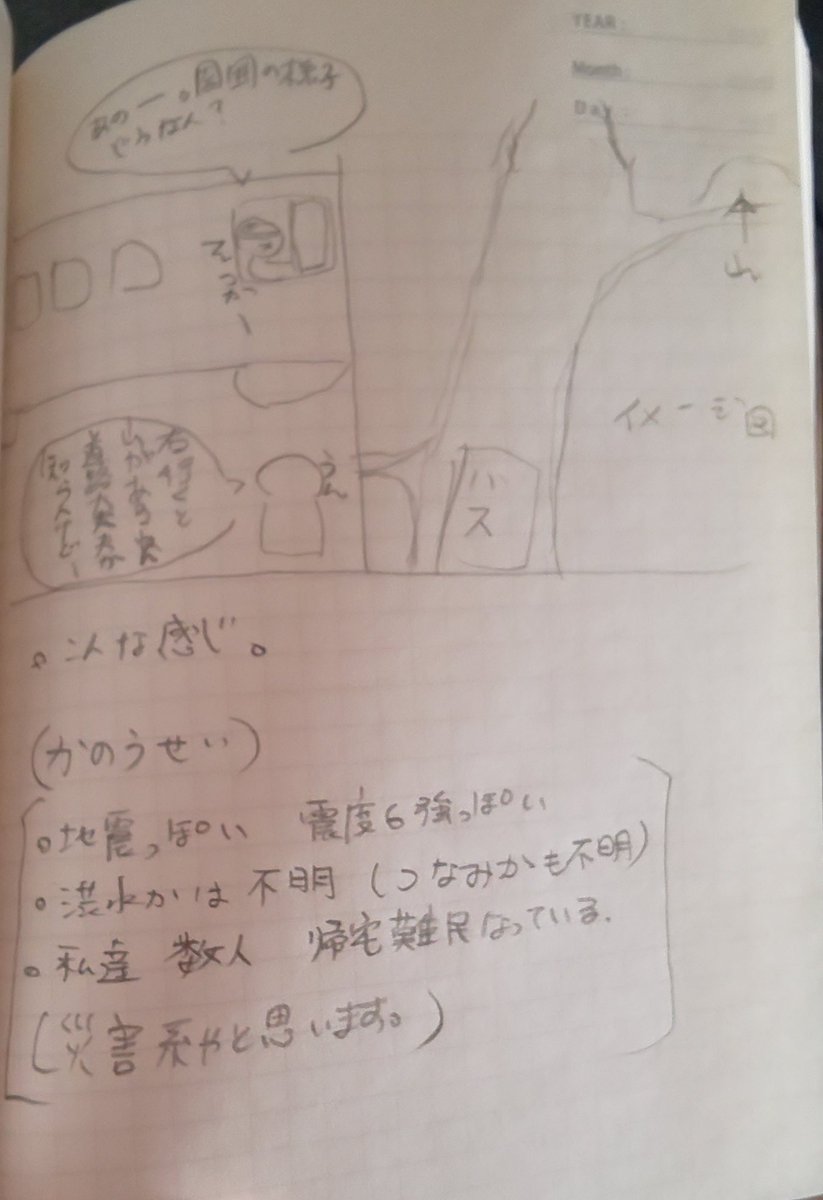 YEAR
Month
Day
あのー。周囲の様子
どうなん?
てっかー
山
イメージ図
うん
バス
右行くと
山がある
知らんけどー
。こんな感じ。
(かのうせい)
。地震っぽい 震度6強っぽい
。洪水かは不明(つなみかも不明)
。私達 数人 帰宅難民なっている。
(災害系やと思います。)